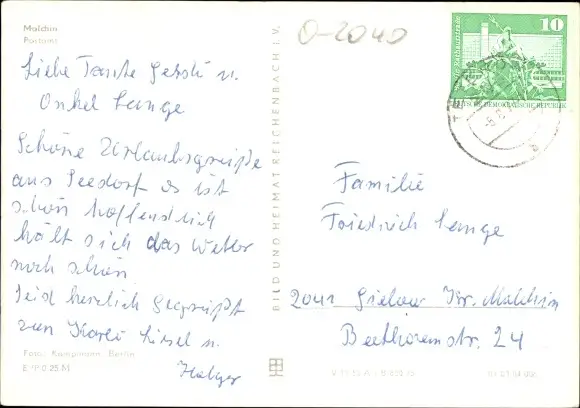 Malchin
Postamt
O-2040
10
DEUTSCHE DEMOKRATISCHE REPUBLIK
Liebe Tante Gerdi u.
Onkel Lange
Schöne Urlaubsgrüße
aus Seedorf es ist
schön hoffendlich
hält sich das Wetter
noch schön
Seid herzlich Gegrüßt
von Karli Liesel u.
Holger
BILD UND HEIMAT REICHENBACH I. V.
Familie
Friedrich Lange
2041 Gielow Kr. Malchin
Beethovenstr. 24
Foto: Kampmann, Berlin
E/P 0,25 M